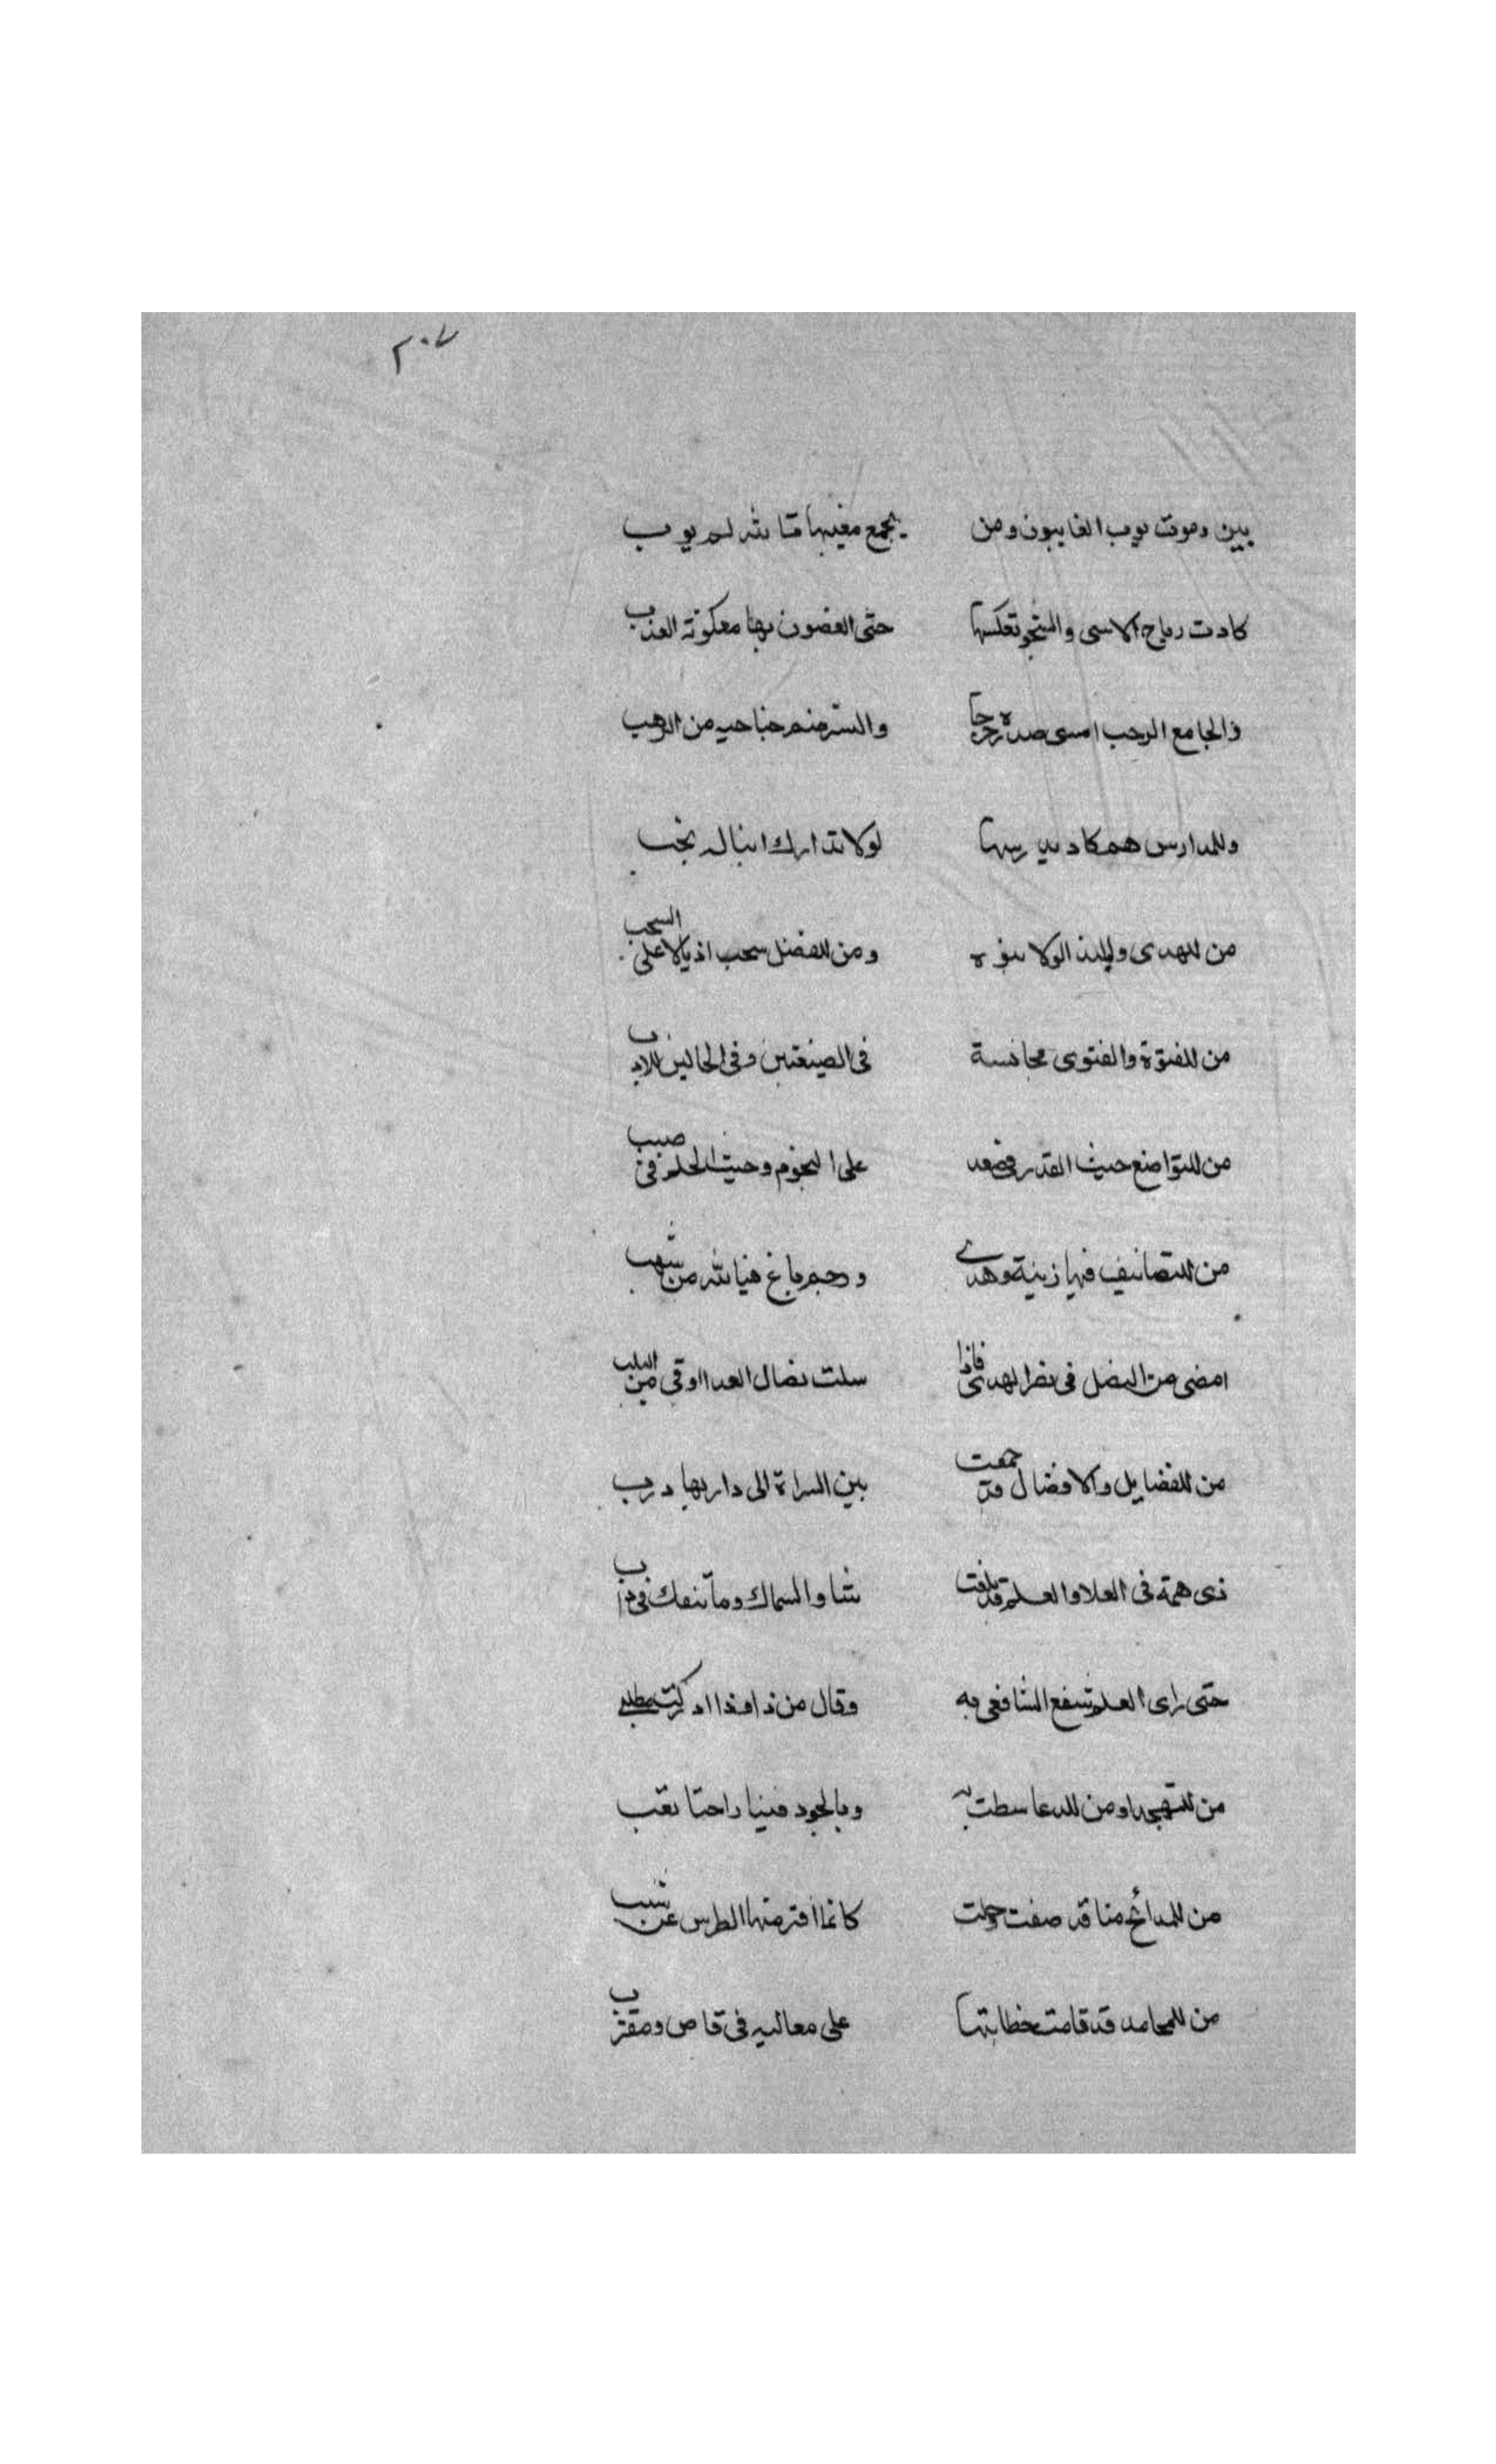 ٢٠٧
بين وموت يوب الغايبون ومن يجمع مغيبها تالله لم يوب
كادت رياح الاسى والشجو تعكسها حتى الغصون بها معكوفة العذب
والجامع الرحب امسى صدره حرجا والنسر ضم جناحيه من الرهب
وللمدارس هم كاد يدرسها لولا تدارك ابناله نجب
من للهدى والندا لولا بنوه ومن للفضل سحب اذيالا على السحب
من للفتوة والفتوى مجانسة في الصيغتين وفي الحالين للادب
من للتواضع حيث القدر في صعد على النجوم وحيث الحلم في صبب
من للتصانيف فيها زينة وهدى ورجم باغ فيالله من شهب
امضى من النصل في نصر الهدى فاذا سلت نصال العدا اوقى من اليلب
من للفضايل والافضال قد جمعت بين السراة الى داريها درب
ذي همة في العلا والعلم قد بلغت شاو السماك وما تنفك في داب
حتى راى العلم شفع الشافعي به وقال من ذا وذا ادركت مطلبي
من للتهجد او من للدعا بسطت به وبالجود فينا راحتا تعب
من للمدائح منا قد صفت وجلت كانما افتر منها الطرس عن شنب
من للمحامد قد قامت خطابتها على معاليه في قاص ومقترب